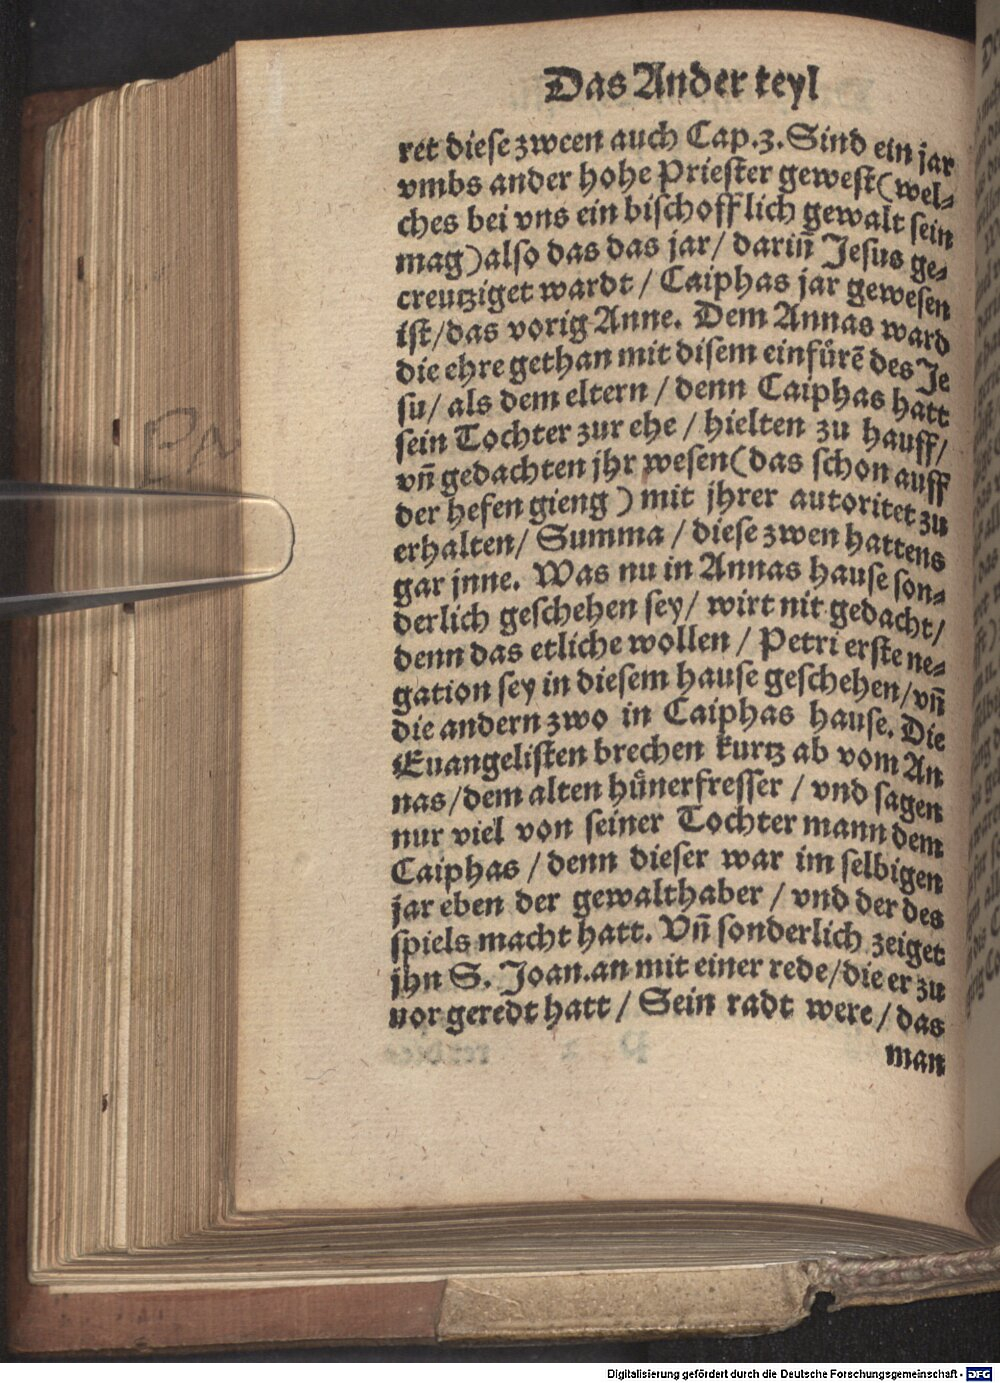 Das Ander teyl
ret diese zween auch Cap.3. Sind ein jar
vmbs ander hohe Priester gewest (wel⸗
ches bei vns ein bischofflich gewalt sein
mag) also das das jar / darin̄ Jesus ge⸗
creutziget wardt / Caiphas jar gewesen
ist / das vorig Anne. Dem Annas ward
die ehre gethan mit disem einfuͤrē des Je
su / als dem eltern / denn Caiphas hatt
sein Tochter zur ehe / hielten zu hauff /
vn̄ gedachten jhr wesen (das schon auff
der hefen gieng) mit jhrer autoritet zu
erhalten / Summa / diese zwen hattens
gar jnne. Was nu in Annas hause son⸗
derlich geschehen sey / wirt nit gedacht /
denn das etliche wollen / Petri erste ne⸗
gation sey in diesem hause geschehen / vn̄
die andern zwo in Caiphas hause. Die
Euangelisten brechen kurtz ab vom An
nas / dem alten huͤnerfresser / vnd sagen
nur viel von seiner Tochter mann dem
Caiphas / denn dieser war im selbigen
jar eben der gewalthaber / vnd der des
spiels macht hatt. Vn̄ sonderlich zeiget
jhn S. Joan. an mit einer rede / die er zu
uor geredt hatt / Sein radt were / das
man
Digitalisierung gefördert durch die Deutsche Forschungsgemeinschaft - DFG